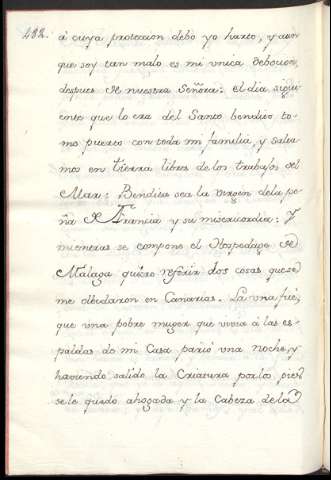 482.
à cuya proteccion debo yo harto, y aun
que soy tan malo es mi unica debocion,
despues de nuestra Señora: el dia sigui
ente que lo era del Santo bendito to-
mo puerto con toda mi familia, y salta
mos en tierra libres de los trabajos del
Mar: Bendita sea la virgen dela pe
ña de Francia y su misericordia: Y
mientras se compone el Ospedage de
Málaga quiero referir dos cosas que se
me olbidaron en Canarias. La una fue,
que una pobre muger que vivia á las es-
paldas de mi Casa parió una noche, y
haviendo salido la Criatura por los pies
se le quedo ahogada y la Cabeza de la